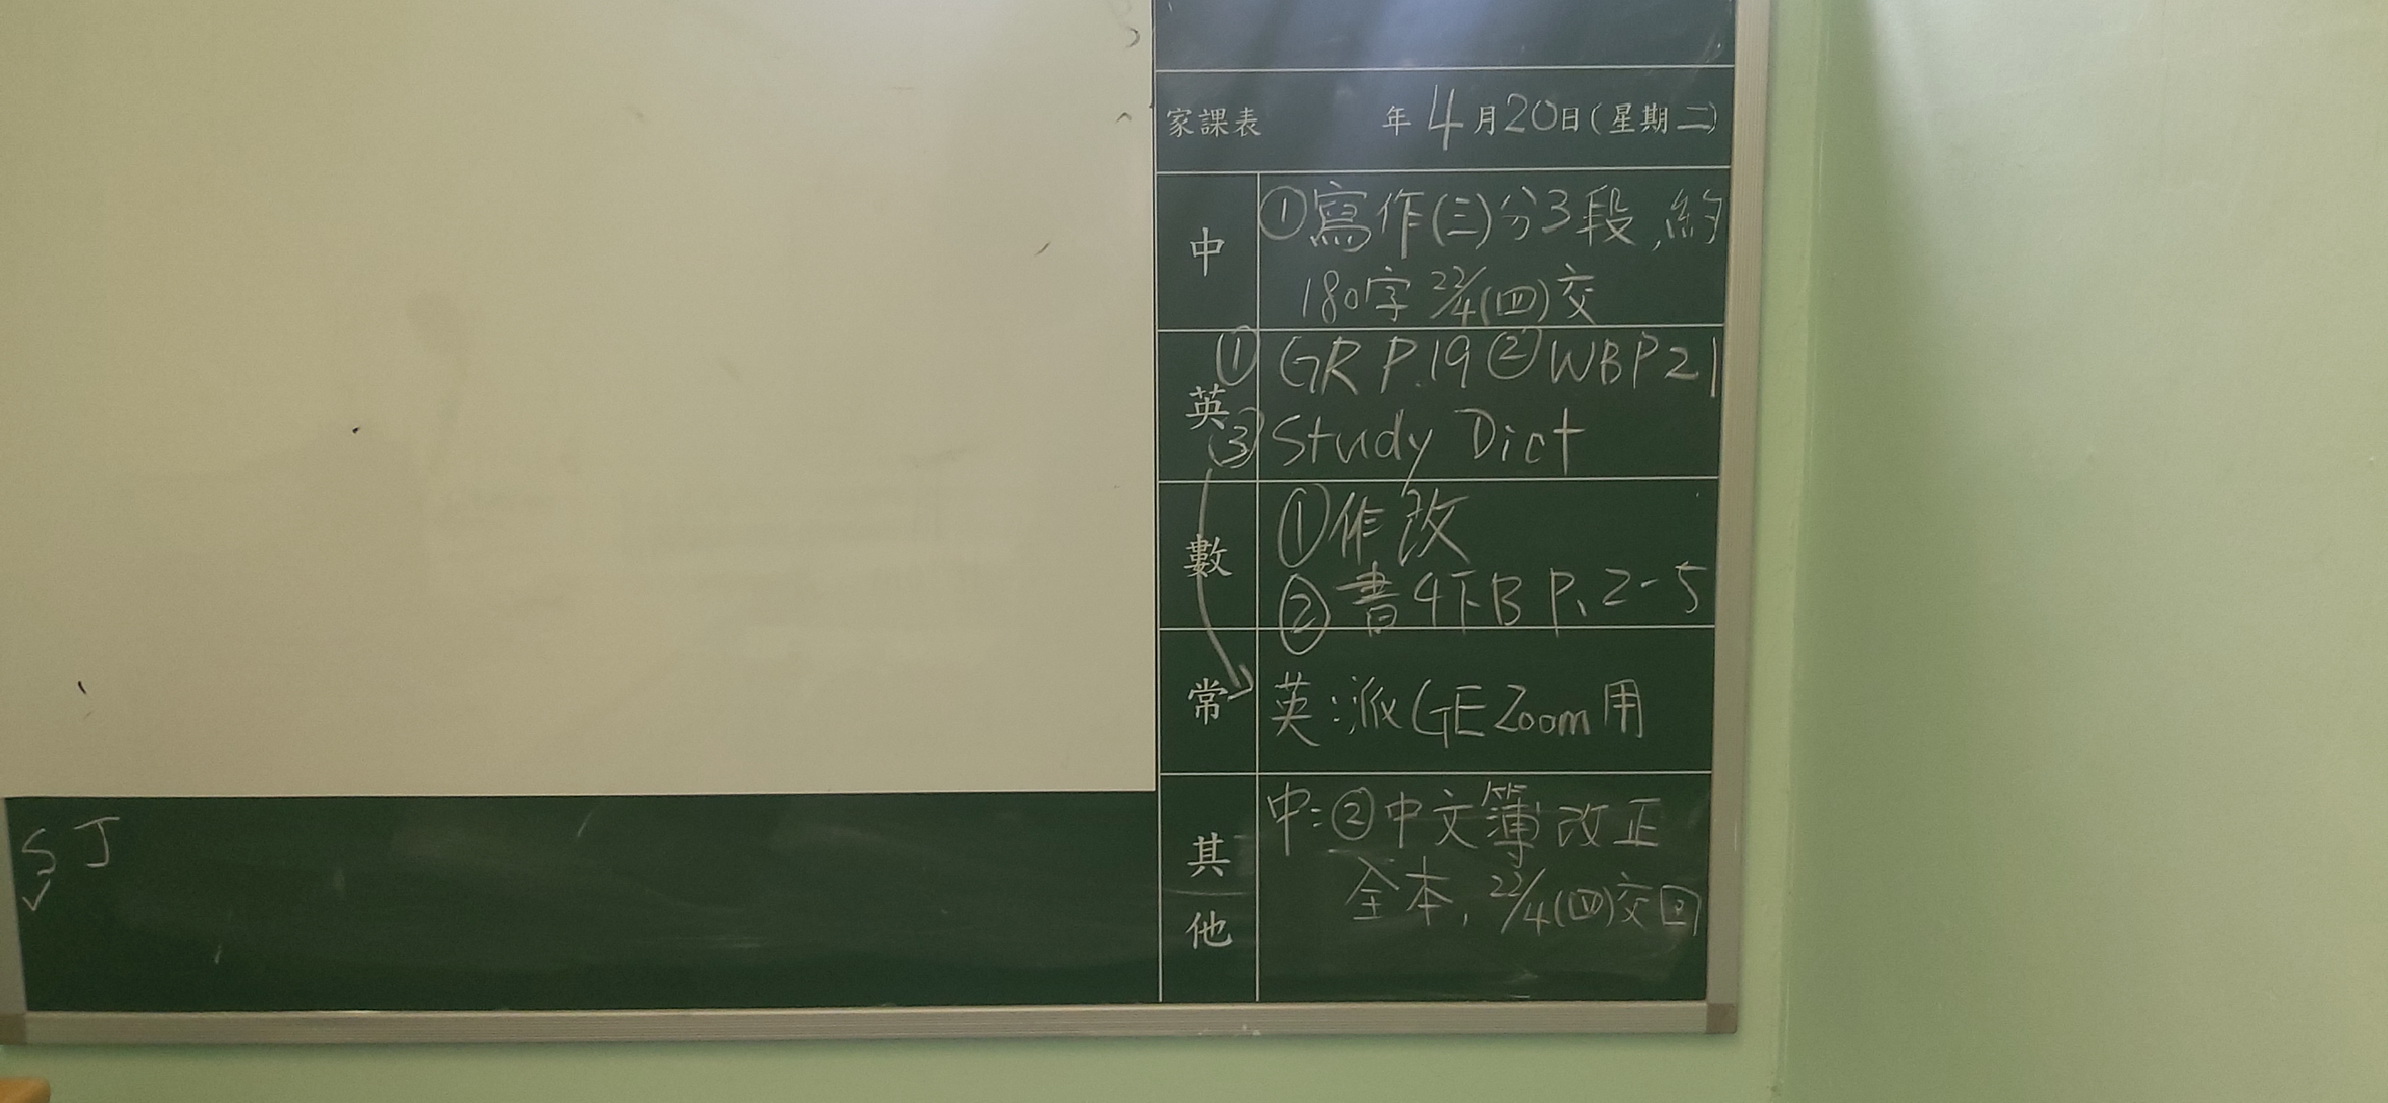 家課表 年4月20日(星期二)
中
①寫作(三)分3段,約
180字 22/4(四)交
英
① GR P.19 ② WB P21
③ Study Dict
數
①作改
②書4下B P.2-5
常
英:派GE Zoom用
其他
中:②中文簿改正
全本,22/4(四)交回
SJ